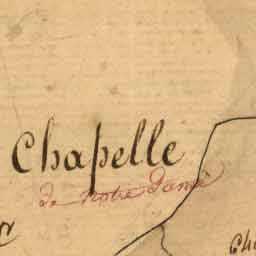 Chapelle
de Notre Dame
Cha